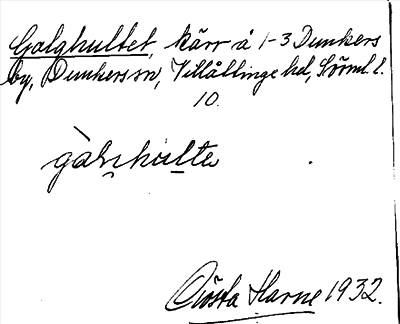 Galghultet, kärr å 1-3 Dunkers
by, Dunkers sn, Villåttinge hd, Sörml. l.
10.
gàlhulte
Gösta Harne 1932.